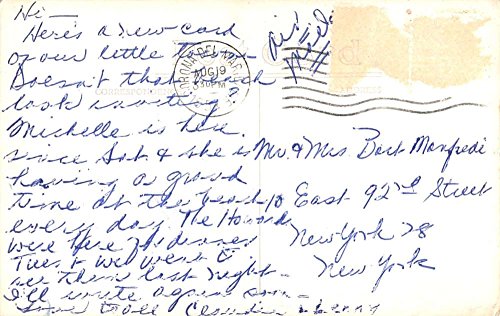 Hi-
Here's a new card
of our little town.
Doesn't that beach
look inviting?
Michelle is here
since Sat. & she is
having a grand
time at the beach
every day. The Howards
were here for dinner
Tues. & we went to
see them last night -
I'll write again soon -
Love to all
CORONA DEL MAR
AUG 19
PM
Air
Mail
CORRESPONDENCE
ADDRESS
Mr. & Mrs. Bart Manfredi
10 East 92nd Street
New York 28
New York